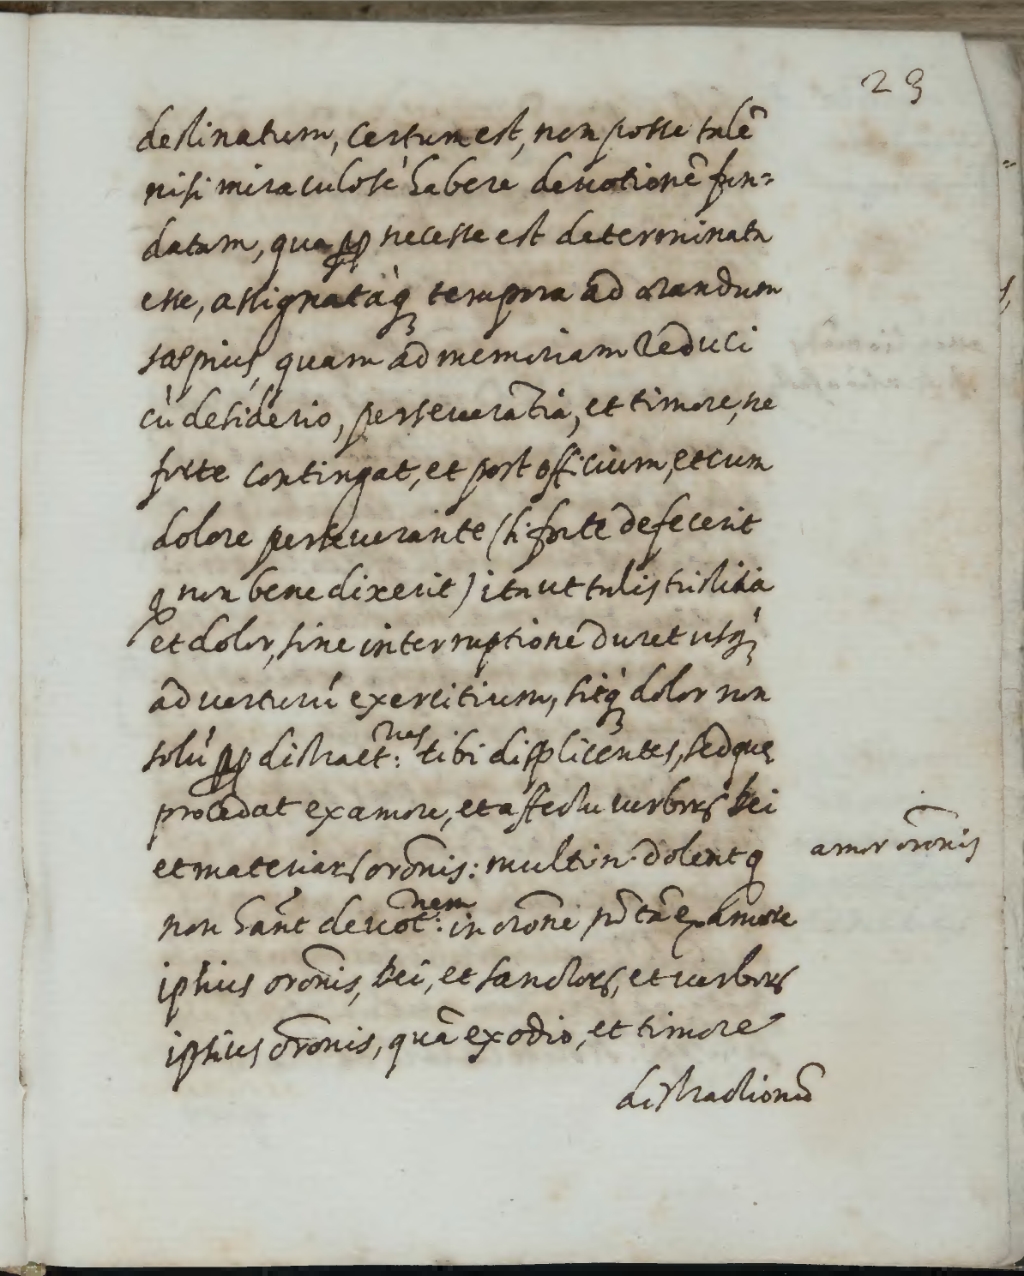 23
destinatum, certum est, non posse talē
nisi miraculosè habere deuotionē fun=
datam, qua necesse est determinata
esse, assignataq́; tempora ad orandum
sæpius, quam ad memoriam reduci
cū desiderio, perseuerātia, et timore, ne
forte contingat, et post officium, et cum
dolore perseuerante (si forte defecerit
q̃ non bene dixerit) ita ut talis tristitia
et dolor, sine interruptione duret usq́;
ad uerturū exercitium, sitq́; dolor non
solū distract:nes tibi displicentes, sed quę
procedat ex amore, et affectu uerborꝝ Dei
et materiarꝝ orōnis: multi n. dolent q
non hānt deuot:nem in orōne tā ex amore
ipsius orōnis, Dei, et sanctorꝝ, et uerborꝝ
ipsius orōnis, quā ex odio, et timore
distractionū
amor orōnis